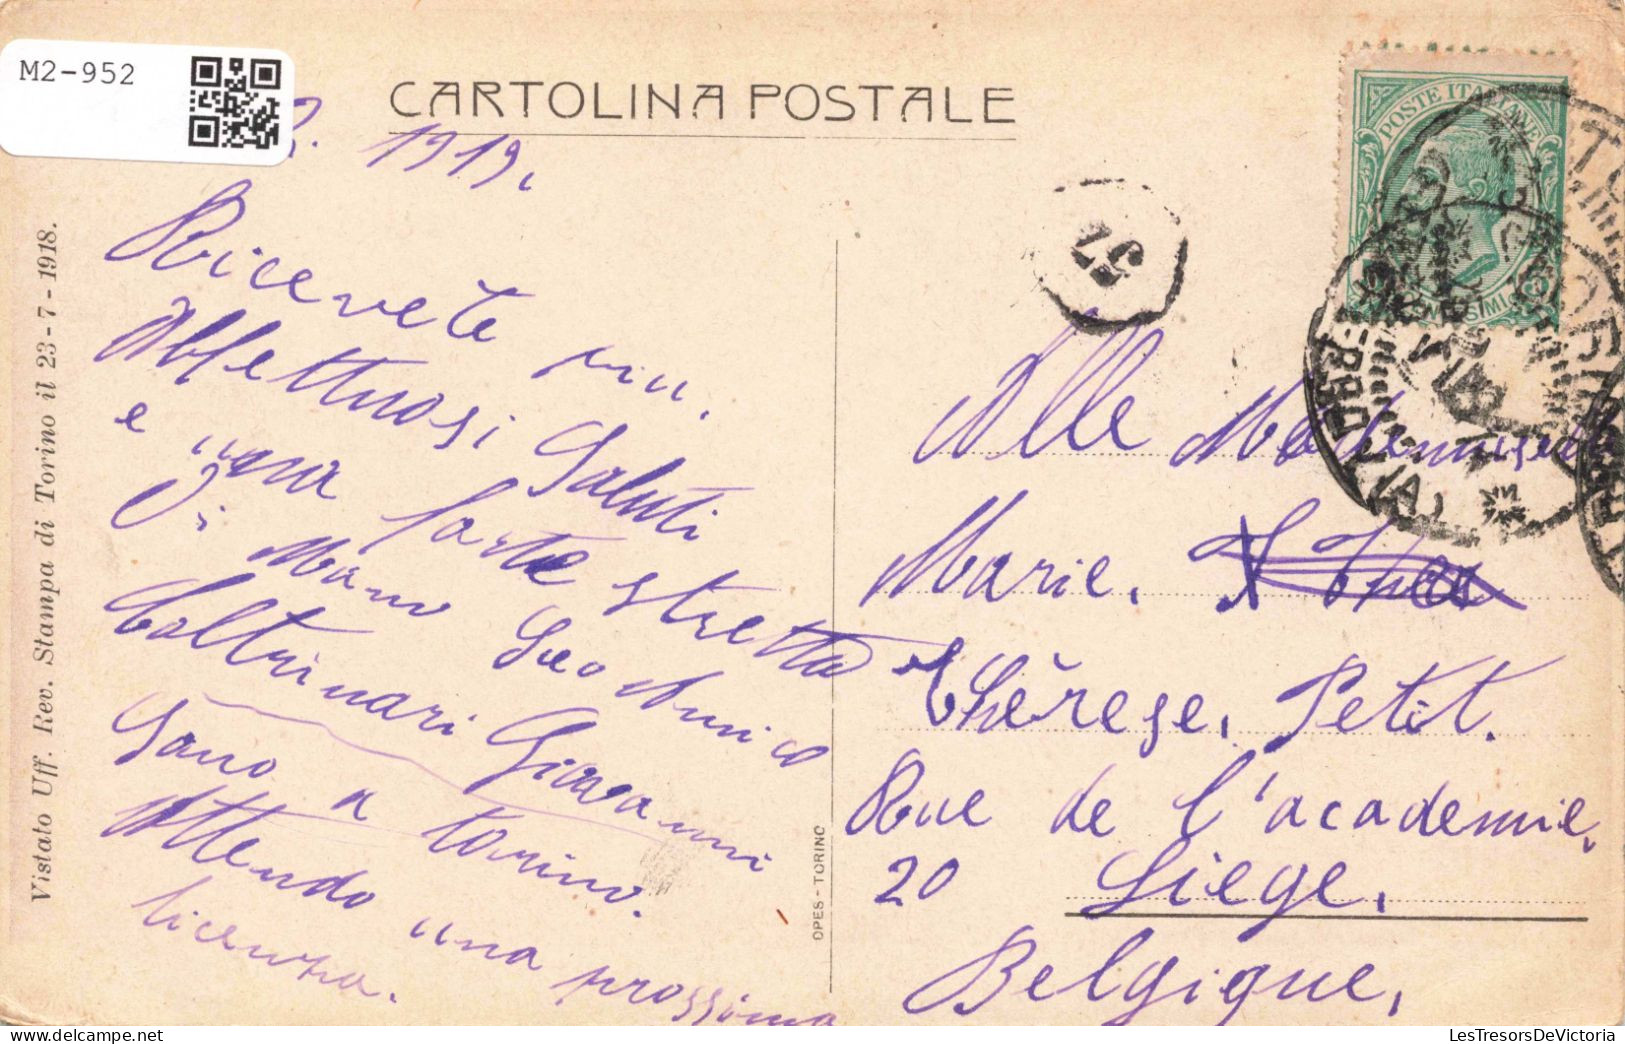 M2-952
CARTOLINA POSTALE
1919.
Ricevete miei
Affettuosi Saluti
e una forte stretta
Di Mano Suo Amico
Coltrinari Giovanni
Sono a torino.
Attendo una prossima
licenza.
Vistato Uff. Rev. Stampa di Torino il 23-7-1918.
OPES - TORINO
POSTE ITALIANE
57
Alle Mademuselle
Marie.
Thèrese, Petit.
Rue de l'academie,
20 Liege,
Belgique,
LesTresorsDeVictoria.com